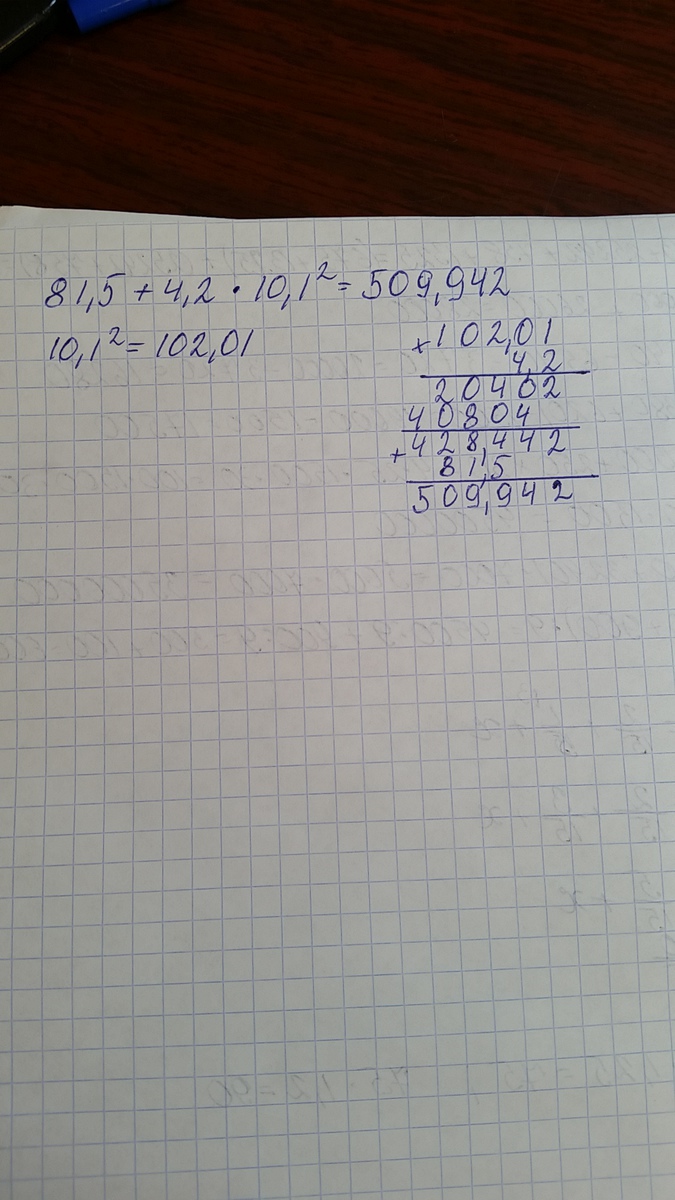 81,5 + 4,2 · 10,1² = 509,942
10,1² = 102,01
× 102,01
4,2
20402
40804
+ 428,442
81,5
509,942